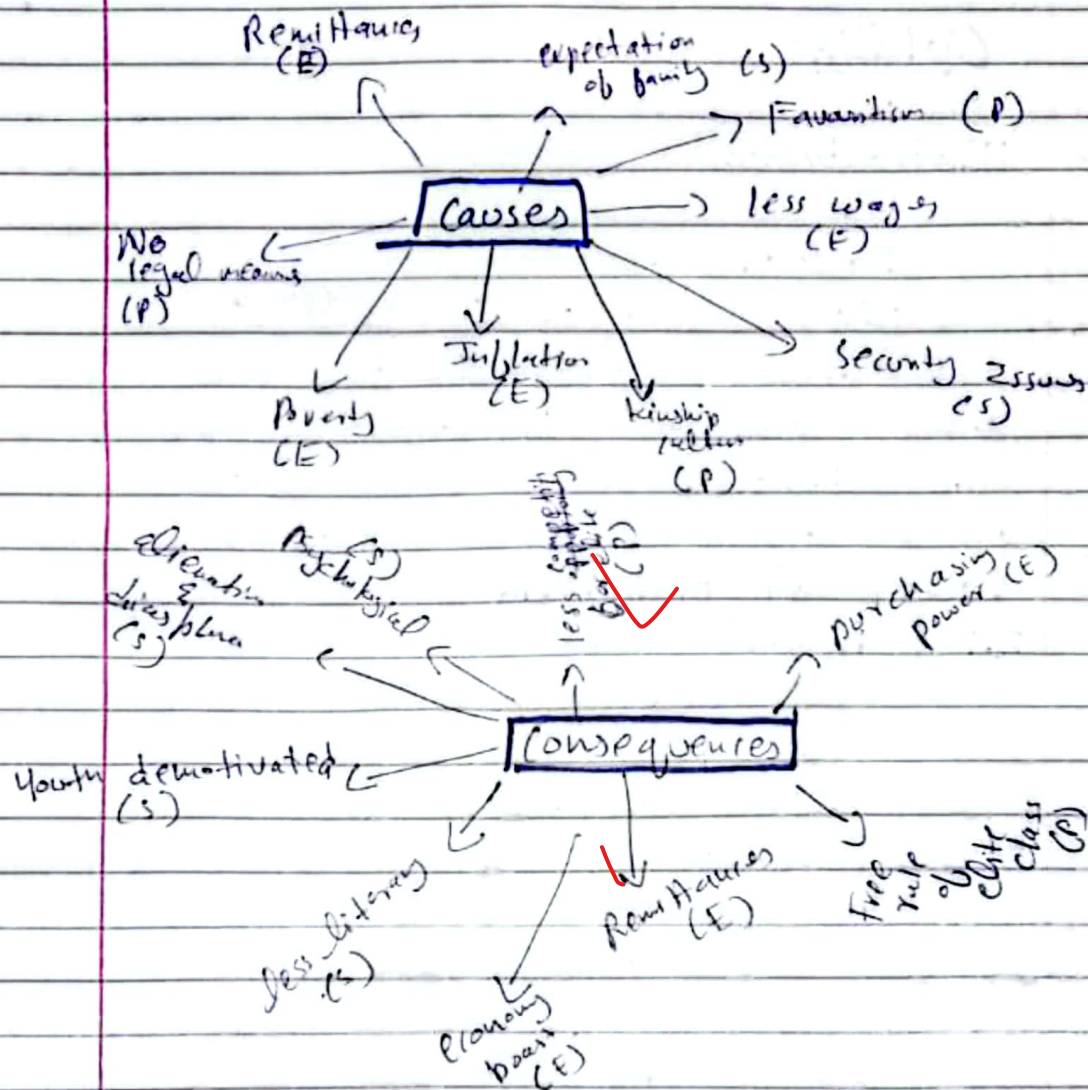 Remittances
(E)
expectation
of family (S)
Favouritism (P)
Causes
less wages
(E)
No
legal means
(P)
Inflation
(E)
Security Issues
(S)
Poverty
(E)
Kinship
culture
(P)
alienation
&
diasphora
(S)
Psychological
(S)
less
for elite
(P)
purchasing
power (E)
Consequences
Youth demotivated
(S)
less literacy
(S)
economy
boast
(E)
Remittances
(E)
Free
rule
of
elite
class
(P)